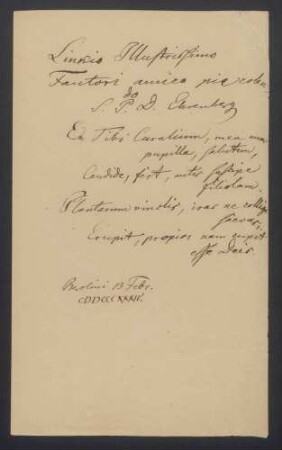 Linkio Illustrissimo
Fautori amico pie colen
do
S. P. D. Ehrenberg
En Tibi Curalium, mea
pupilla, salutem,
Candide, fert, inter suscipe
filiolam.
Plantarum vinclis, ne
saevas,
Eripit, propior nam cupit
esse Deis.
Berolini 13 Febr.
CIƆIƆCCCXXXIV.